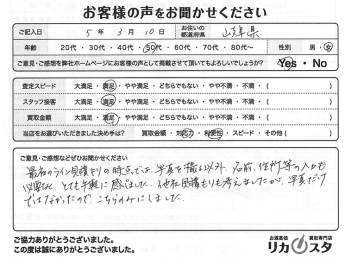 お客様の声をお聞かせください
ご記入日 5年 3月 10日 お住いの都道府県 山梨県
年齢 20代・30代・40代・50代・60代・70代・80代〜 性別 男・女
ご意見・ご感想を弊社ホームページにお客様の声として掲載させて頂いてもよろしいでしょうか? Yes・No
査定スピード 大満足・満足・やや満足・どちらでもない・やや不満・不満・( )
スタッフ接客 大満足・満足・やや満足・どちらでもない・やや不満・不満・( )
買取金額 大満足・満足・やや満足・どちらでもない・やや不満・不満・( )
当店をお選びいただきました決め手は? 買取金額・対応力・利便性・スピード・その他( )
ご意見・ご感想などぜひお聞かせください
最初のライン見積もりの時点では、写真を撮る以外、名前、住所等の入力も
必要なく、とても手軽に感じました。他社見積もりも考えましたが、写真だけ
ではなかったので、こちらのみにしました。
ご協力ありがとうございました。
この度は誠にありがとうございました。
お酒高価 買取専門店
リカスタ